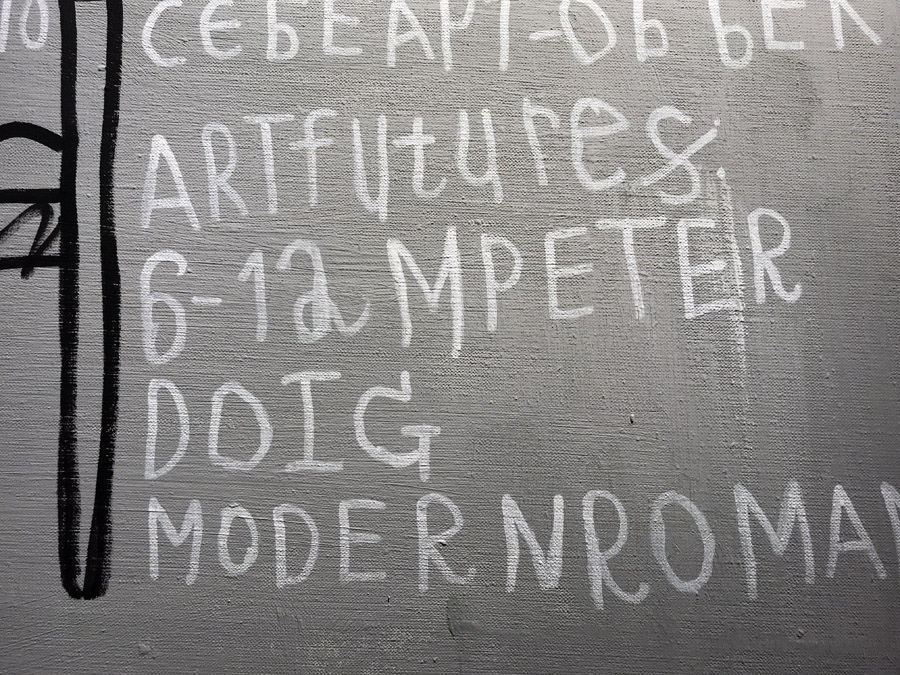 СЕБЕ АРТ-ОБЪЕК
ARTfutures.
6-12 M PETER
DOIG
MODERN ROMAN